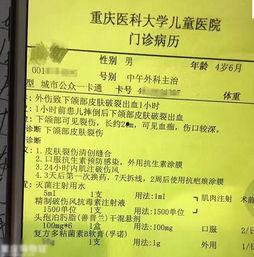 重庆医科大学儿童医院
门诊病历
性别 男 年龄 4岁6月
001 中午外科主治
型 城市公众一卡通 体重
:外伤致下颌部皮肤破裂出血1小时
:1小时前患儿摔倒后下颌部皮肤破裂出血
:下颌部可见裂伤,长约2 ,可见血痂,伤口较深,
诊断 下颌部裂伤
:1.皮肤裂伤清创缝合
2.口服抗生素预防感染,外用抗生素涂膜
3.24小时内肌注破伤风
4.3天后第一次换药,7天拆线,2周后使用抗疤痕涂膜
:灭菌注射用水
5ml 1支 用法:1ml 肌肉注射
精制破伤风抗毒素注射液
1500单位 1支 用法:1500单位
头孢泊肟酯(善普兰)干混悬剂
100mg*6 1盒 用法:100mg 口服
复方多粘菌素B软膏(孚诺)
用法:1g 外用